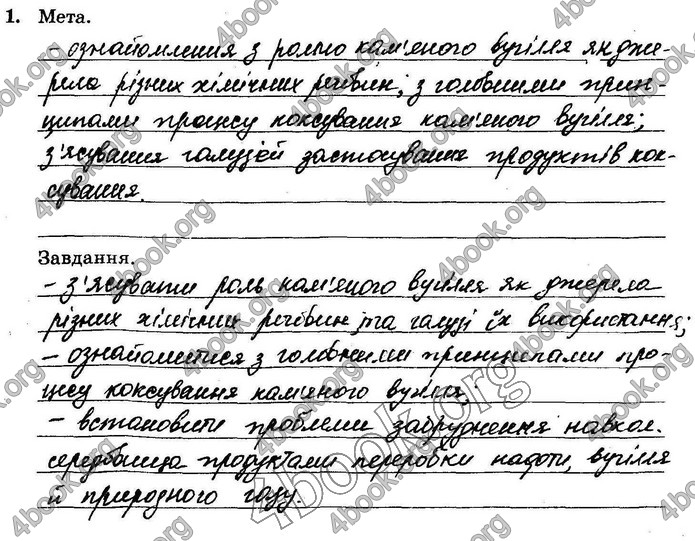 1. Мета.
– ознайомлення з роллю кам'яного вугілля як дже-
рела різних хімічних речовин; з головними прин-
ципами процесу коксування кам'яного вугілля;
з'ясування галузей застосування продуктів кок-
сування.
Завдання.
– з'ясувати роль кам'яного вугілля як джерела
різних хімічних речовин та галузі їх використання;
– ознайомитися з головними принципами про-
цесу коксування кам'яного вугілля;
– встановити проблеми забруднення навкол.
середовища продуктами переробки нафти, вугілля
й природного газу.
4book.org